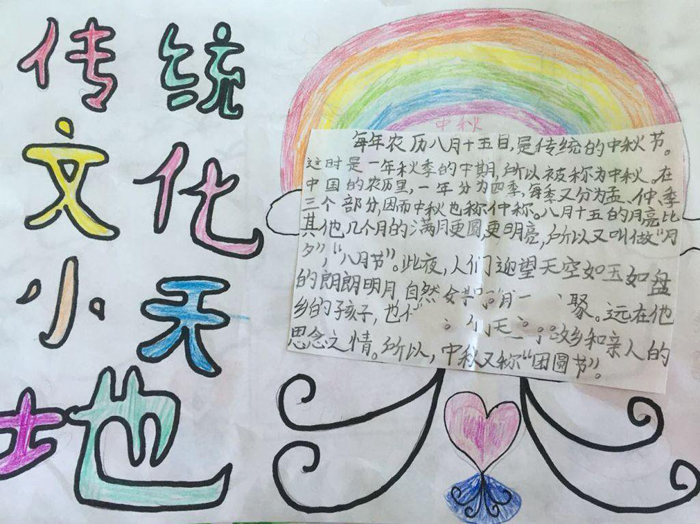 传统
文化
小天
地
中秋
每年农历八月十五日,是传统的中秋节。
这时是一年秋季的中期,所以被称为中秋。在
中国的农历里,一年分为四季,每季又分为孟、仲、季
三个部分,因而中秋也称仲称。八月十五的月亮比
其他几个月的满月更圆更明亮,所以又叫做“月
夕”,“八月节”。此夜,人们迎望天空如玉如盘
的朗朗明月自然 聚。远在他
乡的孩子,也 乡和亲人的
思念之情。所以,中秋又称“团圆节”。